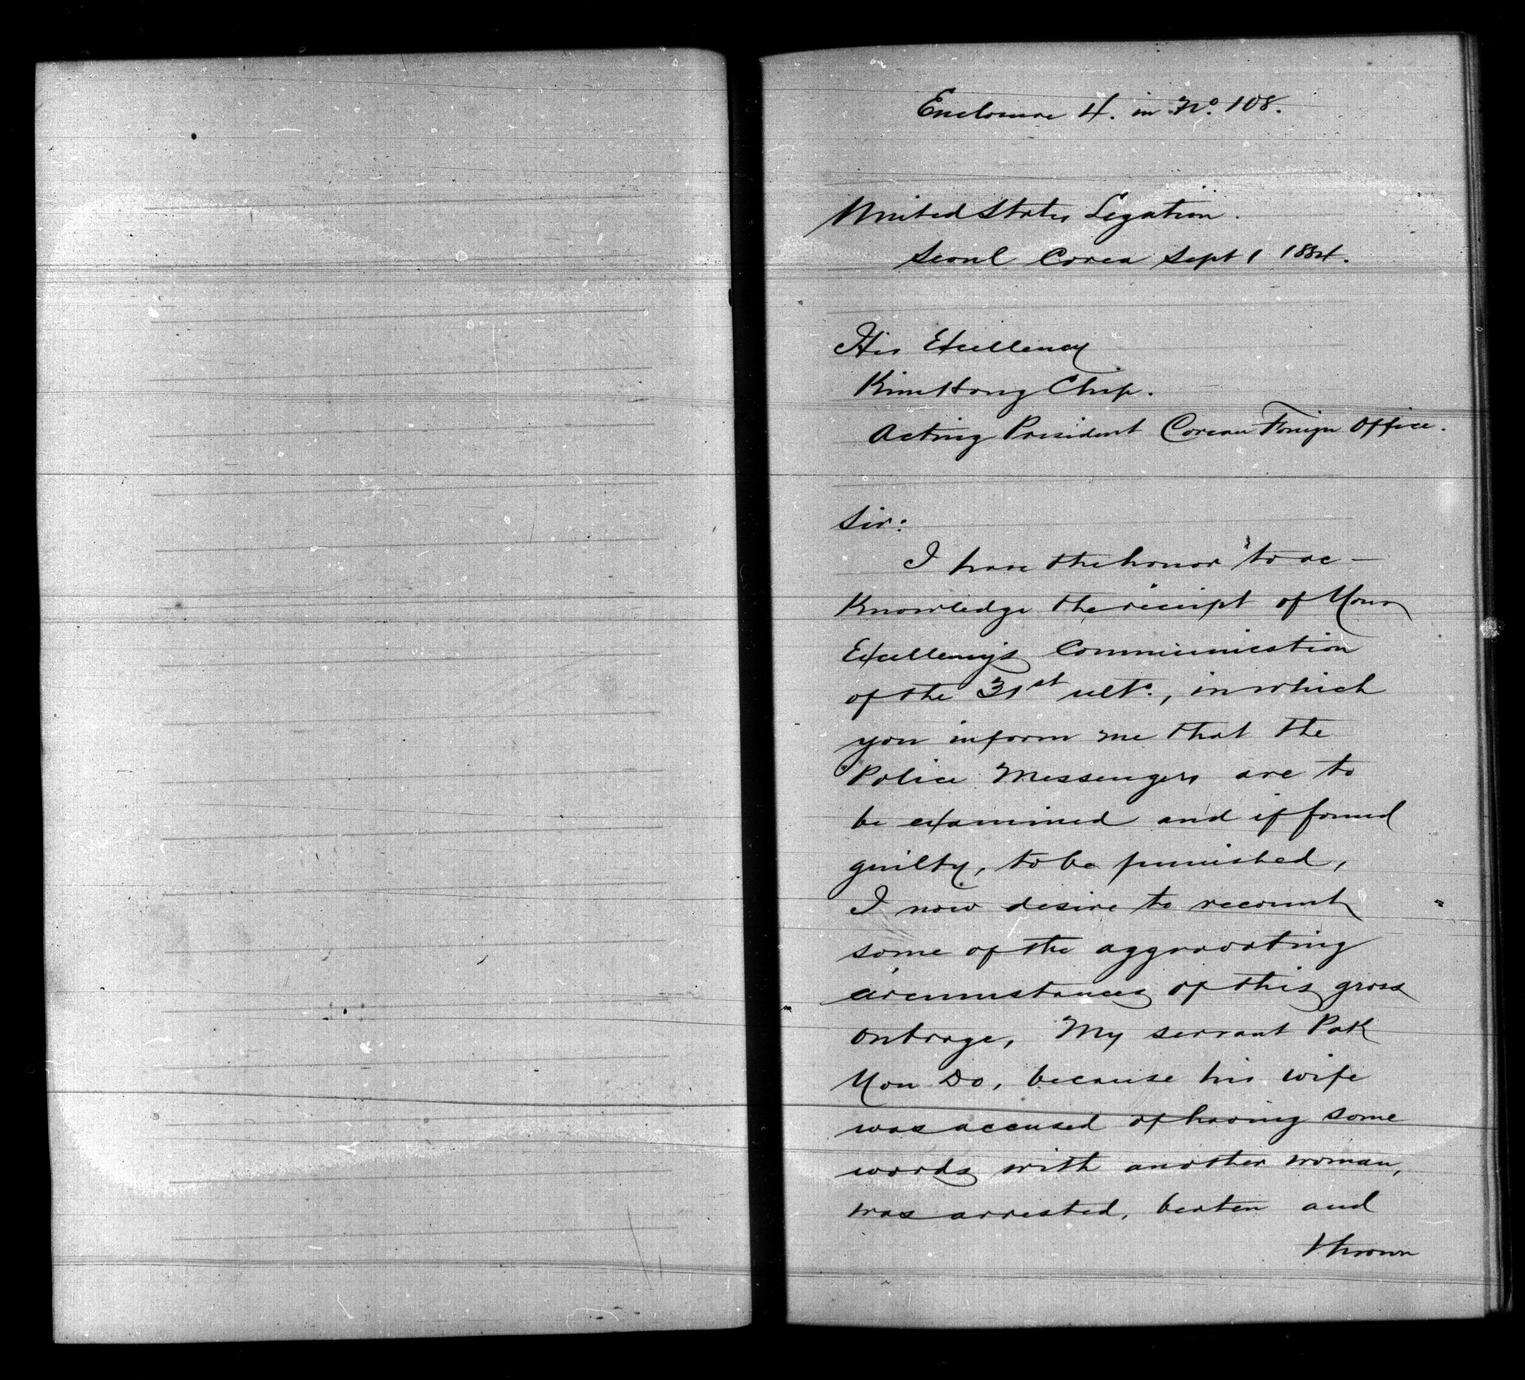 Enclosure 4. in No. 108.
United States Legation.
Seoul Corea Sept 1 1884.
His Excellency
Kim Hong Chip.
Acting President Corean Foreign Office.
Sir:
I have the honor to ac-
knowledge the receipt of Your
Excellency's communication
of the 31st ulto., in which
you inform me that the
Police Messengers are to
be examined and if found
guilty, to be punished,
I now desire to recount
some of the aggravating
circumstances of this gross
outrage, My servant Pak
You Do, because his wife
was accused of having some
words with another woman,
was arrested, beaten and
thrown